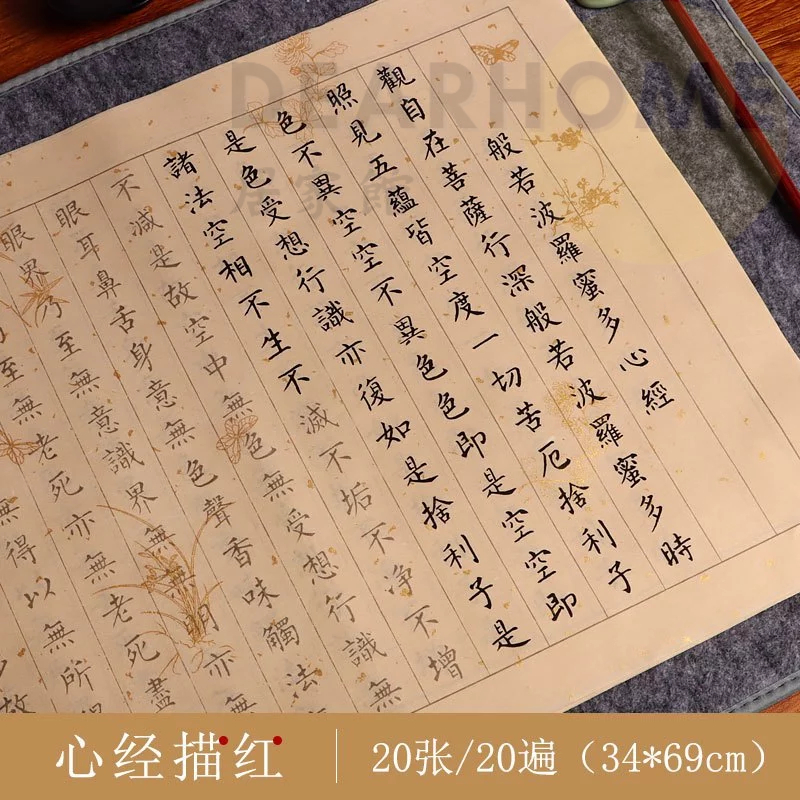 DEARHOME
居家館
般若波羅蜜多心經
觀自在菩薩行深般若波羅蜜多時
照見五蘊皆空度一切苦厄捨利子
色不異空空不異色色即是空空即
是色受想行識亦復如是捨利子是
諸法空相不生不滅不垢不净不增
不減是故空中無色無受想行識無
眼耳鼻舌身意無色聲香味觸法
眼界乃至無意識界無無明亦無
至無老死亦無老死盡
無得以無所
故
心经描红
20张/20遍（34*69cm）